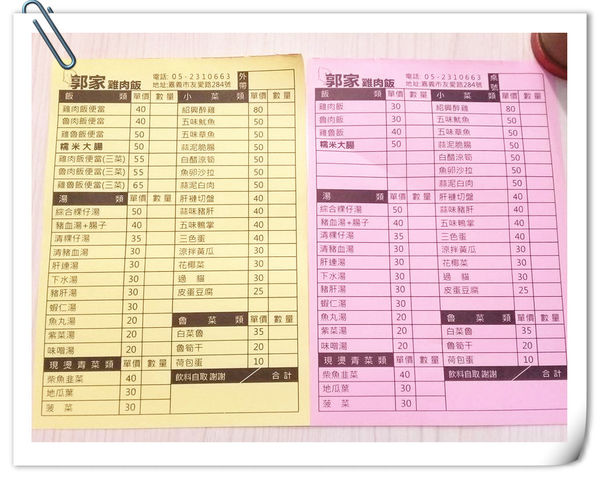 郭家 雞肉飯
電話: 05-2310663
地址:嘉義市友愛路284號
外帶
飯 類 單價 數量
雞肉飯便當 40
魯肉飯便當 40
雞魯飯便當 50
糯米大腸 50
雞肉飯便當(三菜) 55
魯肉飯便當(三菜) 55
雞魯飯便當(三菜) 65
湯 類 單價 數量
綜合粿仔湯 50
豬血湯+腸子 40
清粿仔湯 35
清豬血湯 30
肝連湯 30
下水湯 30
豬肝湯 30
蝦仁湯 30
魚丸湯 20
紫菜湯 20
味噌湯 20
現燙青菜類 單價 數量
柴魚韭菜 40
地瓜葉 30
菠 菜 30
小 菜 類 單價 數量
紹興醉雞 80
五味魷魚 50
五味章魚 50
蒜泥脆腸 50
白醋涼筍 50
魚卵沙拉 50
蒜泥白肉 50
肝褳切盤 40
蒜味豬肝 40
五味鴨掌 40
三色蛋 40
涼拌黃瓜 30
花椰菜 30
過 貓 30
皮蛋豆腐 25
魯 菜 類 單價 數量
白菜魯 35
魯筍干 20
荷包蛋 10
飲料自取 謝謝 / 合計
郭家 雞肉飯
電話: 05-2310663
地址:嘉義市友愛路284號
桌號
飯 類 單價 數量
雞肉飯 30
魯肉飯 30
雞魯飯 40
糯米大腸 50
湯 類 單價 數量
綜合粿仔湯 50
豬血湯+腸子 40
清粿仔湯 35
清豬血湯 30
肝連湯 30
下水湯 30
豬肝湯 30
蝦仁湯 30
魚丸湯 20
紫菜湯 20
味噌湯 20
現燙青菜類 單價 數量
柴魚韭菜 40
地瓜葉 30
菠 菜 30
小 菜 類 單價 數量
紹興醉雞 80
五味魷魚 50
五味章魚 50
蒜泥脆腸 50
白醋涼筍 50
魚卵沙拉 50
蒜泥白肉 50
肝褳切盤 40
蒜味豬肝 40
五味鴨掌 40
三色蛋 40
涼拌黃瓜 30
花椰菜 30
過 貓 30
皮蛋豆腐 25
魯 菜 類 單價 數量
白菜魯 35
魯筍干 20
荷包蛋 10
飲料自取 謝謝 / 合計